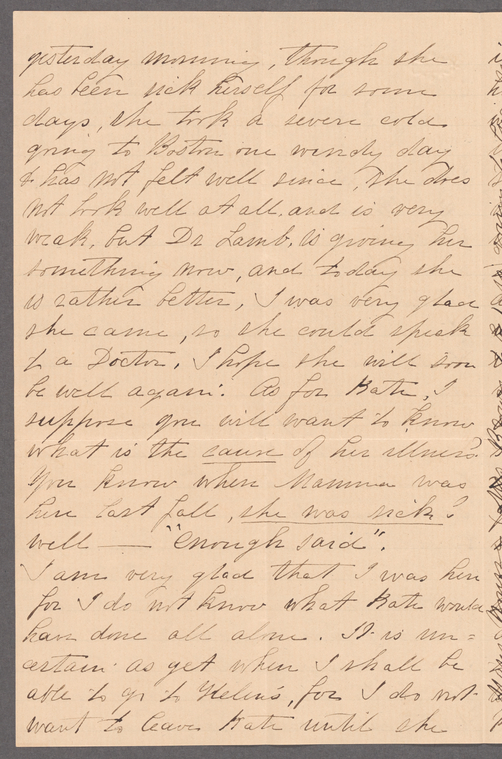 yesterday morning, though she
has been sick herself for some
days, she took a severe cold
going to Boston one windy day
& has not felt well since, she does
not look well at all, and is very
weak, but Dr Lamb, is giving her
something now, and today she
is rather better, I was very glad
she came, so she could speak
to a Doctor. I hope she will soon
be well again. As for Kate, I
suppose you will want to know
what is the cause of her illness.
You know when Mamma was
here last fall, she was sick?
well — "enough said".
I am very glad that I was here
for I do not know what Kate would
have done all alone. It is un=
certain as yet when I shall be
able to go to Helen's, for I do not
want to leave Kate until she